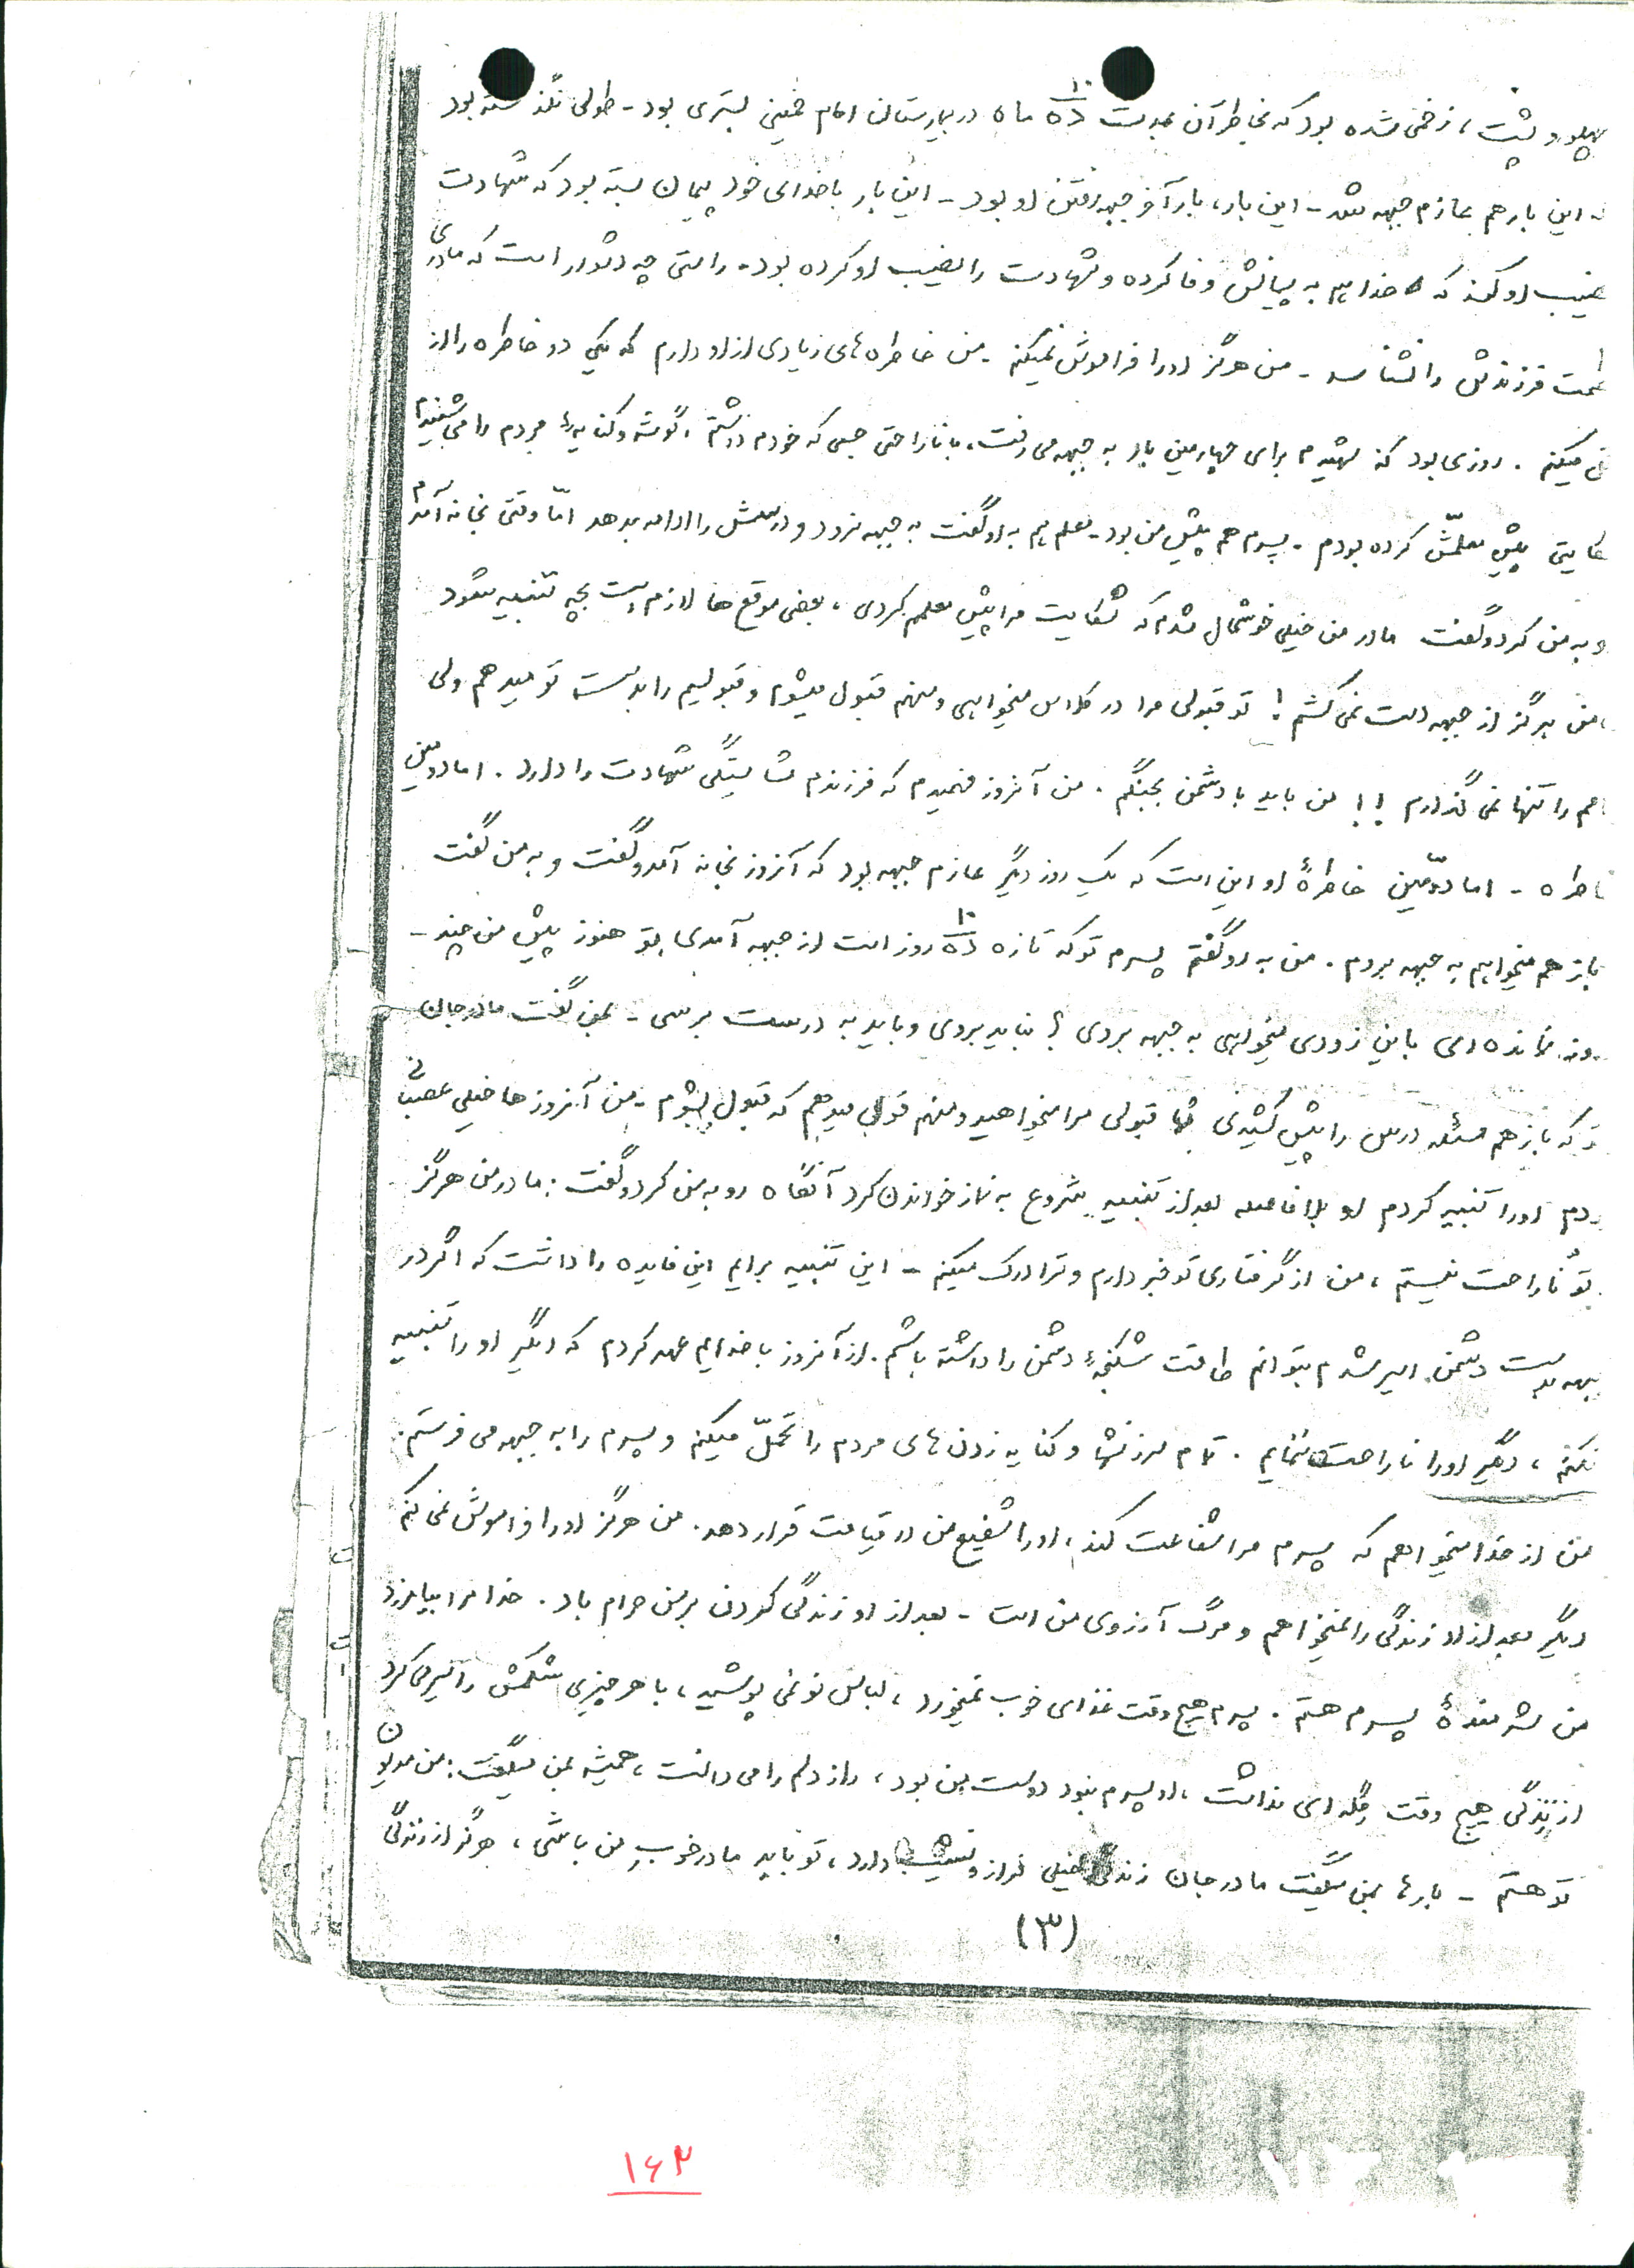 پهلو و پشت، زخمی شده بود که بخاطر آن بمدت ده ۱۰ ماه در بیمارستان امام خمینی بستری بود - طولی نگذشته بود
که این بار هم عازم جبهه شد - این بار، بار آخر جبهه رفتن او بود - این بار با خدای خود پیمان بسته بود که شهادت
نصیب او کند که خدا هم به پیمانش وفا کرده و شهادت را نصیب او کرده بود. راستی چه دشوار است که مادری
عظمت فرزندش را نشناسد - من هرگز او را فراموش نمیکنم - من خاطره های زیادی از او دارم که یکی دو خاطره را از
میکنم. روزی بود که شهیدم برای چهارمین بار به جبهه می رفت، با ناراحتی جسمی که خودم داشتم، گوشه و کنایه های مردم را می شنیدم
شکایتی پیش معلّمش کرده بودم - پسرم هم پیش من بود - معلم هم به او گفت به جبهه نرود و درسش را ادامه بدهد امّا وقتی بخانه آمدم
رو به من کرد و گفت مادر من خیلی خوشحال شدم که شکایت مرا پیش معلمم کردی، بعضی موقع ها لازم است بچه تنبیه شود
من هرگز از جبهه دست نمی کشم! تو قبولی مرا در کلاس میخواهی و منهم قبول میشوم و قبولیم را بدست تو میدهم ولی
را تنها نمی گذارم!! من باید با دشمن بجنگم. من آنروز فهمیدم که فرزندم شایستگی شهادت را دارد. اما دومین
خاطره - اما دوّمین خاطرهٔ او این است که یک روز دیگر عازم جبهه بود که آنروز بخانه آمد و گفت و به من گفت
باز هم میخواهم به جبهه بروم. من به او گفتم پسرم تو که تازه ده ۱۰ روز است از جبهه آمدی تو هنوز پیش من چند -
روز نمانده ای باین زودی میخواهی به جبهه بروی؟ نباید بروی و باید به درست برسی - بمن گفت مادر جان
تو که باز هم مسئله درس را پیش کشیدی شما قبولی مرا میخواهید و منهم قول میدهم که قبول بشوم - من آنروزها خیلی عصبانی
بودم او را تنبیه کردم او بلافاصله بعد از تنبیه شروع به نماز خواندن کرد آنگاه رو به من کرد و گفت: مادر من هرگز
از تو ناراحت نیستم، من از گرفتاری تو خبر دارم و ترا درک میکنم - این تنبیه برایم این فایده را داشت که اگر در
جبهه بدست دشمن اسیر شدم بتوانم طاقت شکنجهٔ دشمن را داشته باشم. از آنروز با خدایم عهد کردم که دیگر او را تنبیه
نکنم، دیگر او را ناراحت ننمایم. تمام سرزنشها و کنایه زدن های مردم را تحمّل میکنم و پسرم را به جبهه می فرستم.
من از خدا میخواهم که پسرم مرا شفاعت کند، او را شفیع من در قیامت قرار دهد. من هرگز او را فراموش نمی کنم
دیگر بعد از او زندگی را نمیخواهم و مرگ آرزوی من است - بعد از او زندگی کردن بر من حرام باد. خدا مرا بیامرزد
من شرمندهٔ پسرم هستم. پسرم هیچ وقت غذای خوب نمیخورد، لباس نو نمی پوشید، با هر چیزی شکمش را سیر می کرد
از زندگی هیچ وقت گله ای نداشت، او پسرم نبود دوست من بود، راز دلم را می دانست، همیشه بمن میگفت: من مدیون
تو هستم - بارها بمن میگفت مادر جان زندگی خیلی فراز و نشیب دارد، تو باید مادر خوب من باشی، هرگز از زندگی
(۳)
۱۶۳